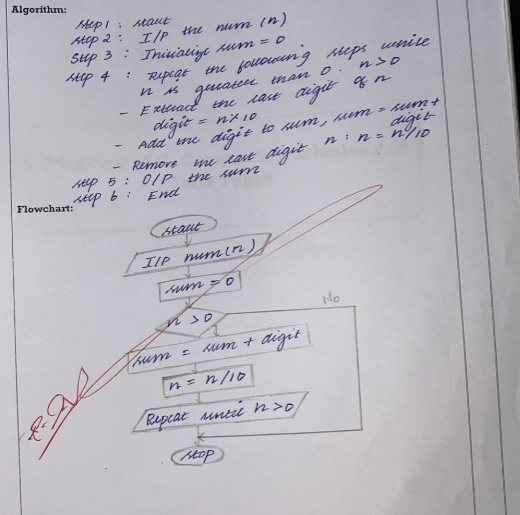 Algorithm:
Step 1 : start
step 2 : I/P the num (n)
Step 3 : Initialize sum = 0
step 4 : Repeat the following steps while
n is greater than 0. n > 0
- Extract the last digit of n
digit = n % 10
- Add the digit to sum, sum = sum +
digit
- Remove the last digit n : n = n/10
step 5 : O/P the sum
step 6 : End
Flowchart:
start
I/P num(n)
sum = 0
n > 0
No
sum = sum + digit
n = n/10
Repeat until n > 0
stop